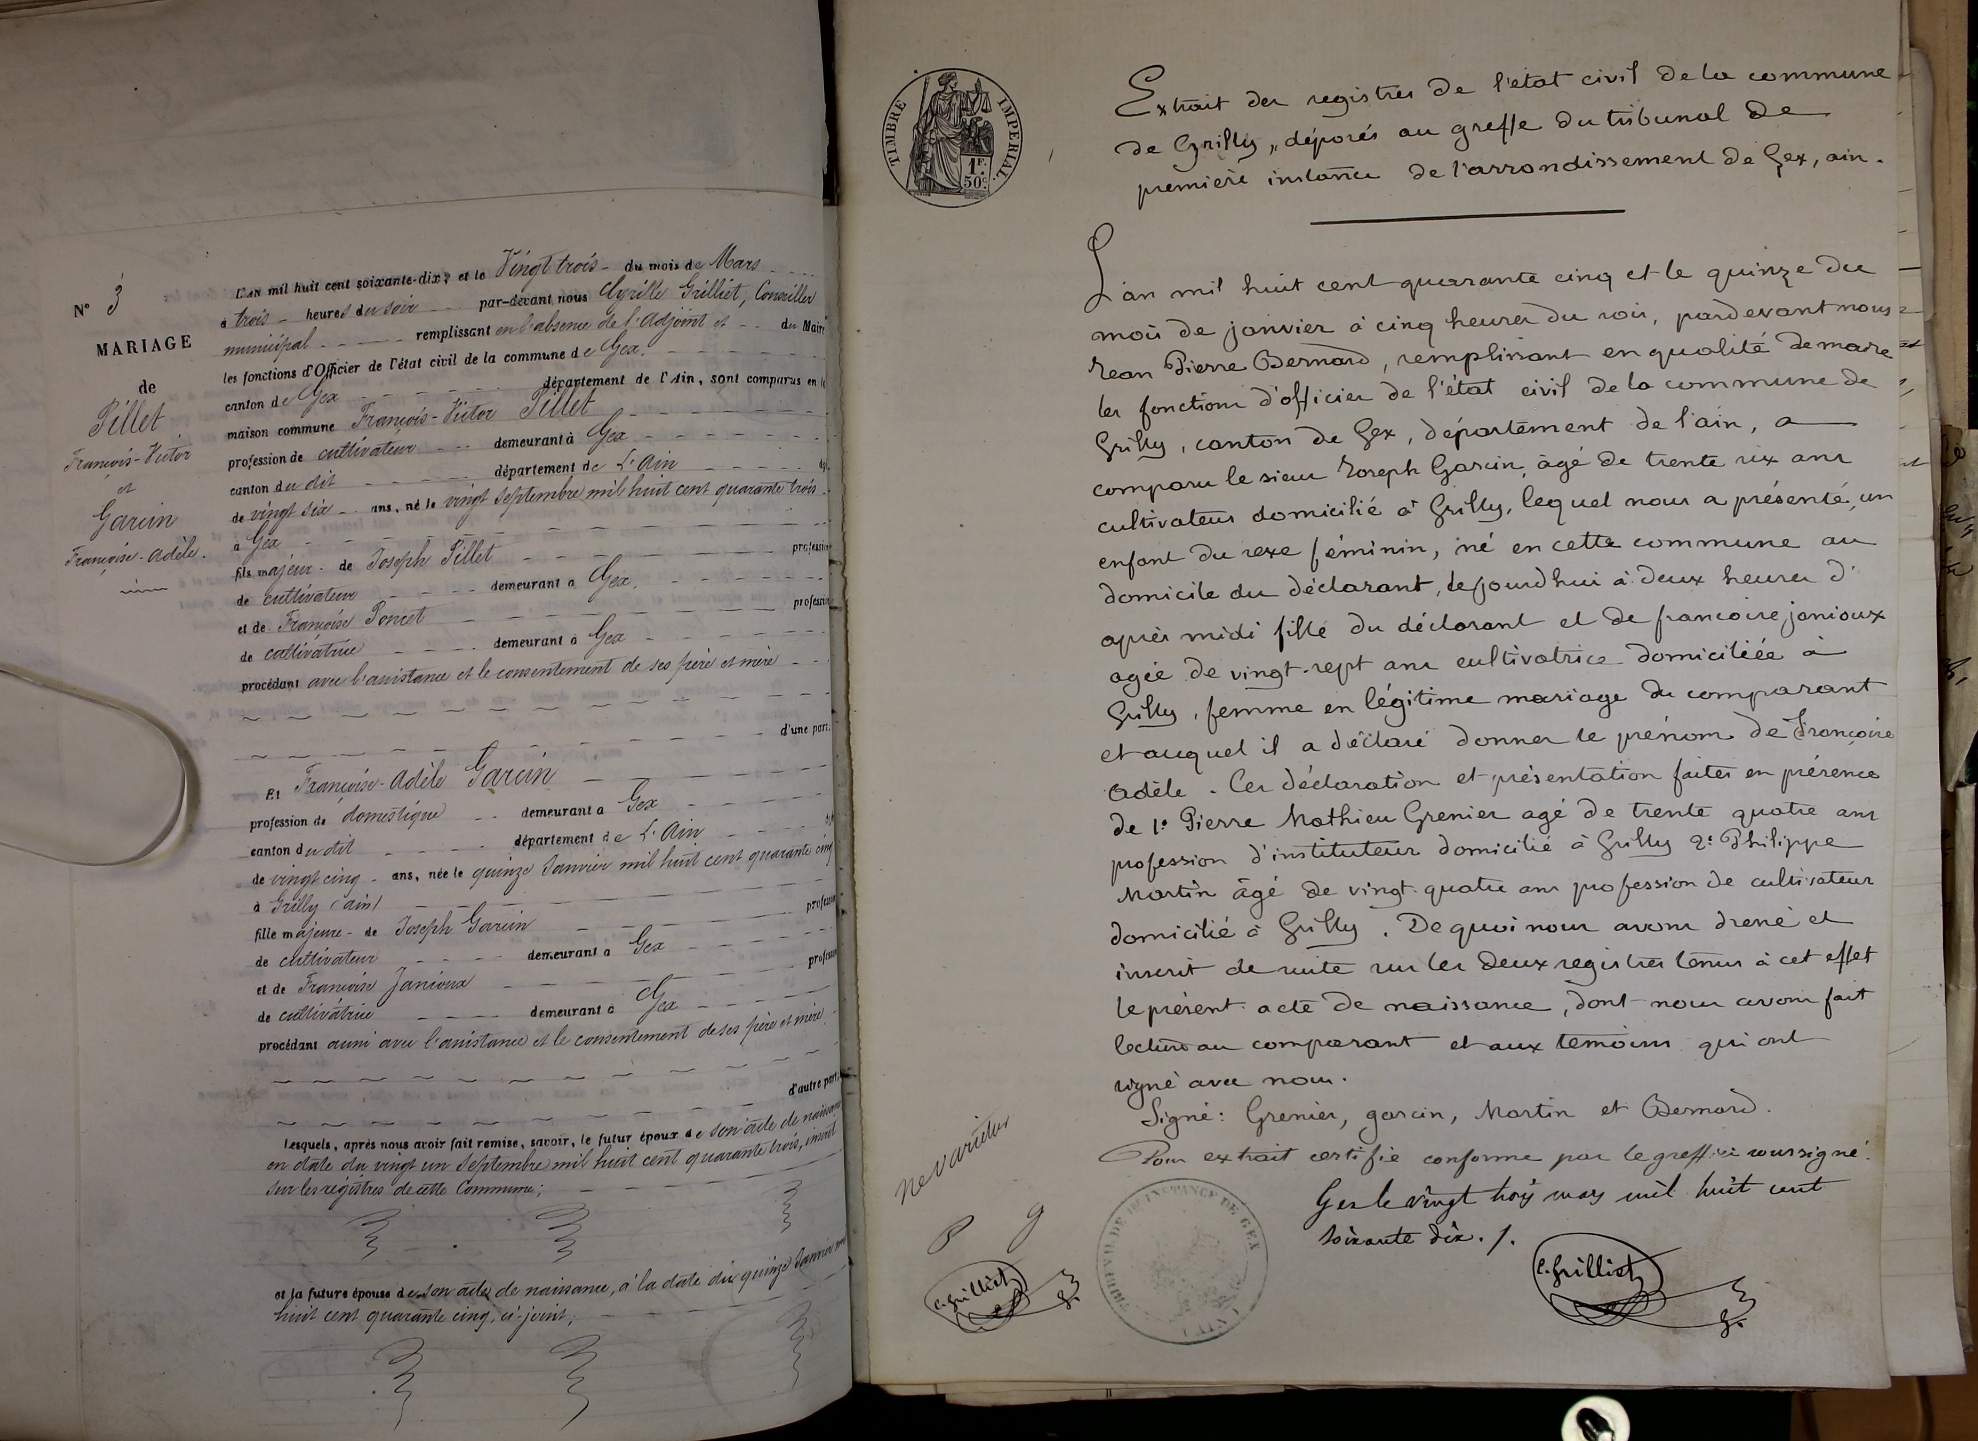 N° 3
MARIAGE
de
Pillet
François-Victor
et
Garcin
Françoise-Adèle.
L'an mil huit cent soixante-dix, et le Vingt trois du mois de Mars
à trois heures du soir par-devant nous Cyrille Grilliet, Conseiller
municipal remplissant en l'absence de l'Adjoint et du Maire
les fonctions d'Officier de l'état civil de la commune de Gex.
canton de Gex département de l'Ain, sont comparus en la
maison commune François-Victor Pillet
profession de cultivateur demeurant à Gex
canton du dit département de L'Ain
de vingt six ans, né le vingt Septembre mil huit cent quarante trois
à Gex
fils majeur de Joseph Pillet profession
de cultivateur demeurant à Gex.
et de Françoise Poncet profession
de cultivatrice demeurant à Gex
procédant avec l'assistance et le consentement de ses père et mère
d'une part.
Et Françoise-Adèle Garcin
profession de domestique demeurant à Gex
canton du dit département de L'Ain
de vingt cinq ans, née le quinze Janvier mil huit cent quarante cinq
à Grilly (Ain)
fille majeure de Joseph Garcin profession
de cultivateur demeurant à Gex
et de Françoise Janioux profession
de cultivatrice demeurant à Gex
procédant aussi avec l'assistance et le consentement de ses père et mère.
d'autre part.
Lesquels, après nous avoir fait remise, savoir, le futur époux de son acte de naissance
en date du vingt un Septembre mil huit cent quarante trois, inscrit
sur les registres de cette Commune;
et la future épouse de son acte de naissance, à la date du quinze Janvier mil
huit cent quarante cinq, ci-joint;
TIMBRE IMPERIAL
1F. 50c.
Extrait des registres de l'état civil de la commune
de Grilly, déposés au greffe du tribunal de
première instance de l'arrondissement de Gex, ain.
L'an mil huit cent quarante cinq et le quinze du
mois de janvier à cinq heures du soir, pardevant nous
Jean Pierre Bernard, remplissant en qualité de maire
les fonctions d'officier de l'état civil de la commune de
Grilly, canton de Gex, département de l'ain, a
comparu le sieur Joseph Garcin, âgé de trente six ans
cultivateur domicilié à Grilly, lequel nous a présenté, un
enfant du sexe féminin, né en cette commune au
domicile du déclarant, cejourd'hui à deux heures d'
après midi fille du déclarant et de francoise janioux
agée de vingt-sept ans cultivatrice domiciliée à
Grilly, femme en légitime mariage du comparant
et auquel il a déclaré donner le prénom de Françoise
Adèle. Ces déclaration et présentation faites en présence
de 1° Pierre Mathieu Grenier agé de trente quatre ans
profession d'instituteur domicilié à Grilly 2° Philippe
Martin âgé de vingt-quatre ans profession de cultivateur
domicilié à Grilly. De quoi nous avons dressé et
inscrit de suite sur les deux registres tenus à cet effet
le présent acte de naissance, dont nous avons fait
lecture au comparant et aux témoins qui ont
signé avec nous.
Signé: Grenier, garcin, Martin et Bernard.
Pour extrait certifié conforme par le greffier soussigné.
Gex le vingt trois mars mil huit cent
soixante dix./.
C. Grilliet
ne varietur
P g
C. Grilliet
TRIBUNAL DE 1RE INSTANCE DE GEX
(AIN)